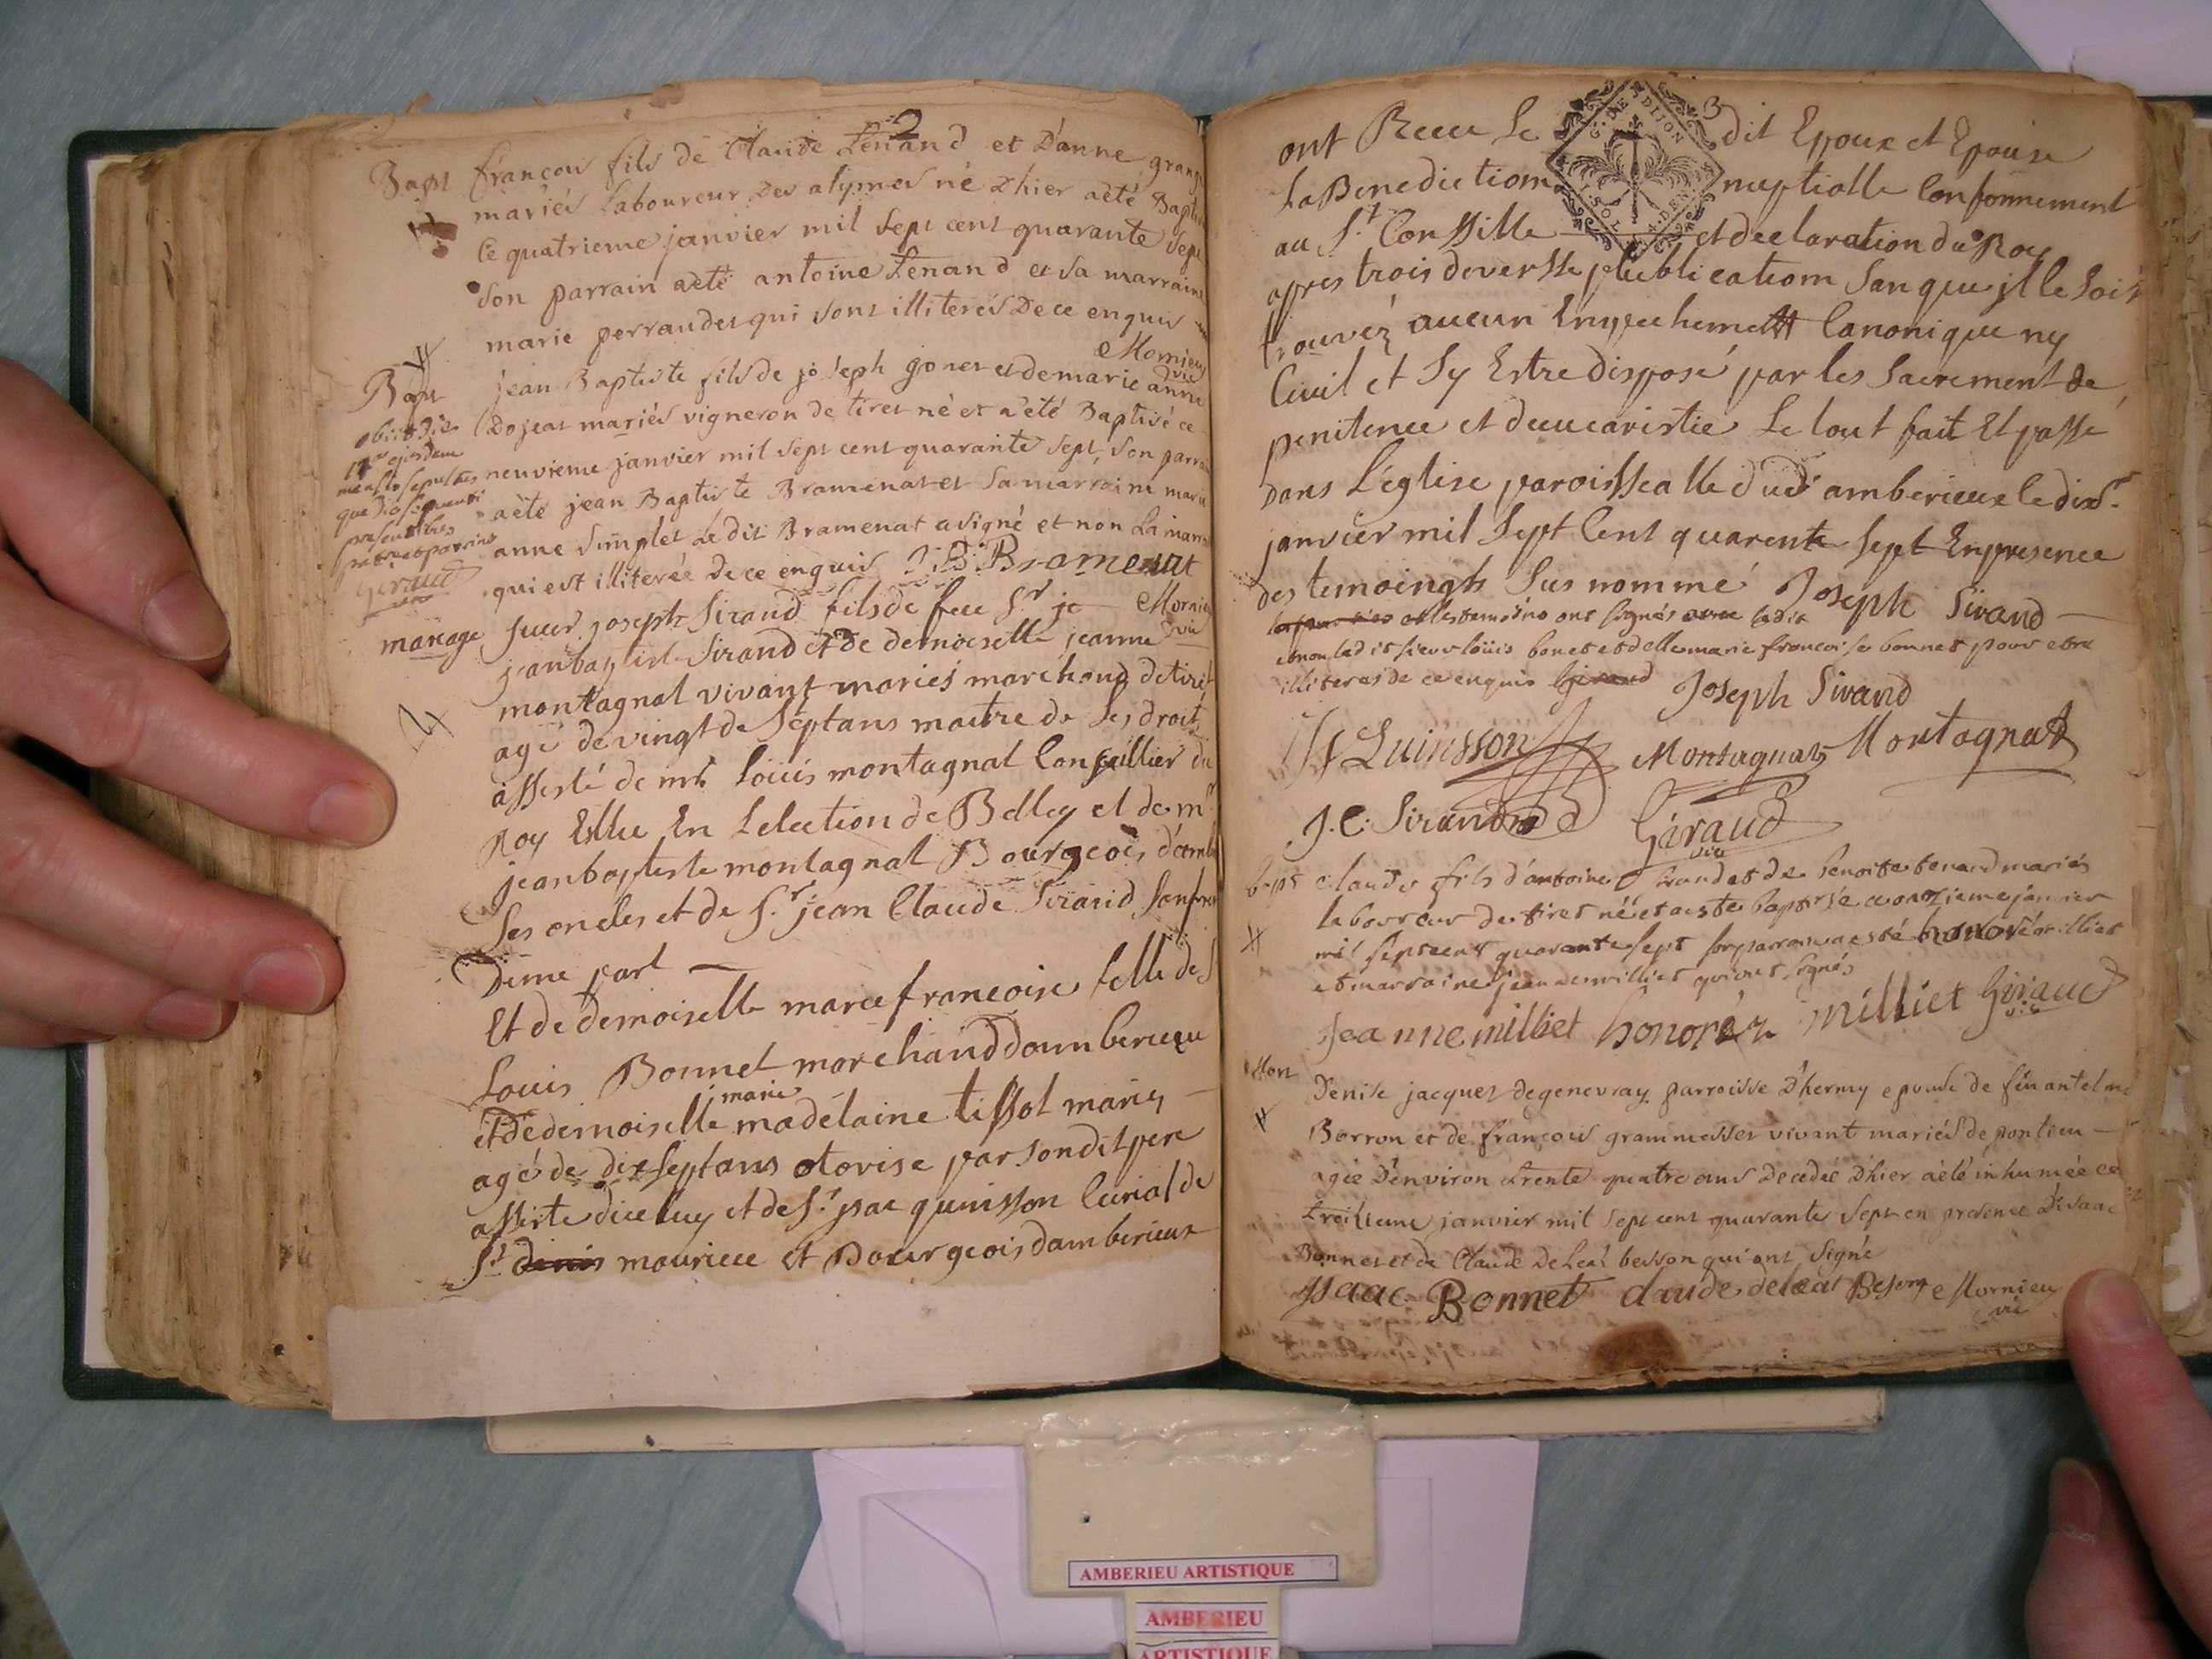 2
Bapt françois fils de Claude Tenand et D'anne grang
mariés Laboureur des alymes né Dhier aèté Baptisé
Ce quatrieme janvier mil sept cent quarante sept
Son parrain aèté antoine Tenand et sa marraine
marie perraudet qui sont illiterés De ce enquis
Mornieu
vic
Bapt jean Baptiste fils de joseph gonet et de marie anne
Dojeat mariés vigneron de tiret né et a'été Baptisé ce
neuvieme janvier mil sept cent quarante sept, Son parrain
aèté jean Baptiste Bramenat et Sa marraine marie
anne Simplet Ledit Bramenat a signé et non La marr
qui est illiterée de ce enquis J:B: Bramenat
obiit die
17a ejusdem
mensis sepultus
que die sequenti
presentibus
patre et patrino
Giraud
vic
Mornieu
vic
mariage sieur joseph Sirand fils de feu Sr je
jeanbaptist Sirand et de demoiselle jeanne
montagnat vivant mariés marchand de tiret
agé de vingt de septans maitre de ses droit
assesté de mr loüis montagnat Conseillier du
Roy Esllu En Lelection de Belley et de mr
jeanbaptiste montagnat Bourgeois d'ambe
Ses oncles et de Sr jean Claude Sirand Sonfrere
Dune part
Et de demoiselle marie francoise fille de S
Louis Bonnet marchand damberieu
et de demoiselle marie madélaine tissot mariés
agé de dix septans otorise par sondit pere
assiste diceluy et de Sr jsac quinsson Curial de
St denis mauriece et Bourgeois damberieux
3
G. DE DIJON
ont Receu Le dit Epoux et Epouse
La Benediction nuptialle Conformement
au St Conssille et declaration du Roy
apres trois deversse publication San que jl le soit
trouvéz aucun Empechement Canonique ny
Civil et Sy Estre disposé par les Sacrement de
penitence et deucaristie Le tout fait Et passé
dans L'église paroissealle dudt amberieux le dixr
janvier mil Sept Cent quarente sept En presence
des temoingh Sus nommé Joseph Sirand
les parties et les temoins ont signés avec ledit
et non led it sieur loüis bonet et delle marie francoise bonnet pour etre
illiterés de ce enquis Giraud Joseph Sirand
Quinsson Montagnat Montagnat
J. C. Sirand Giraud
vic
bapt claude fils d'antoine et de benoite tenand mariés
laboureur de tiret né et a este baptisé ce onzieme janvier
mil septcent quarante sept son parrain a esté honoré milliet
et marraine jeanne milliet qui ont signés
Jeanne milliet honoréz milliet Giraud
vic
Mort Denise jacquet de genevray parroisse D'hermy epouse de feu antelme
Borron et de françois grammesser vivant mariés de pontieu
agée D'environ trente quatre ans decedée D'hier aèté inhumée ce
treitieme janvier mil sept cent quarante sept en presence D'isaac
Bonnet et de Claude Deleaz besson qui ont signé
Isaac Bonnet claude deleat Beson Mornieu
vic
AMBERIEU ARTISTIQUE
AMBERIEU
ARTISTIQUE